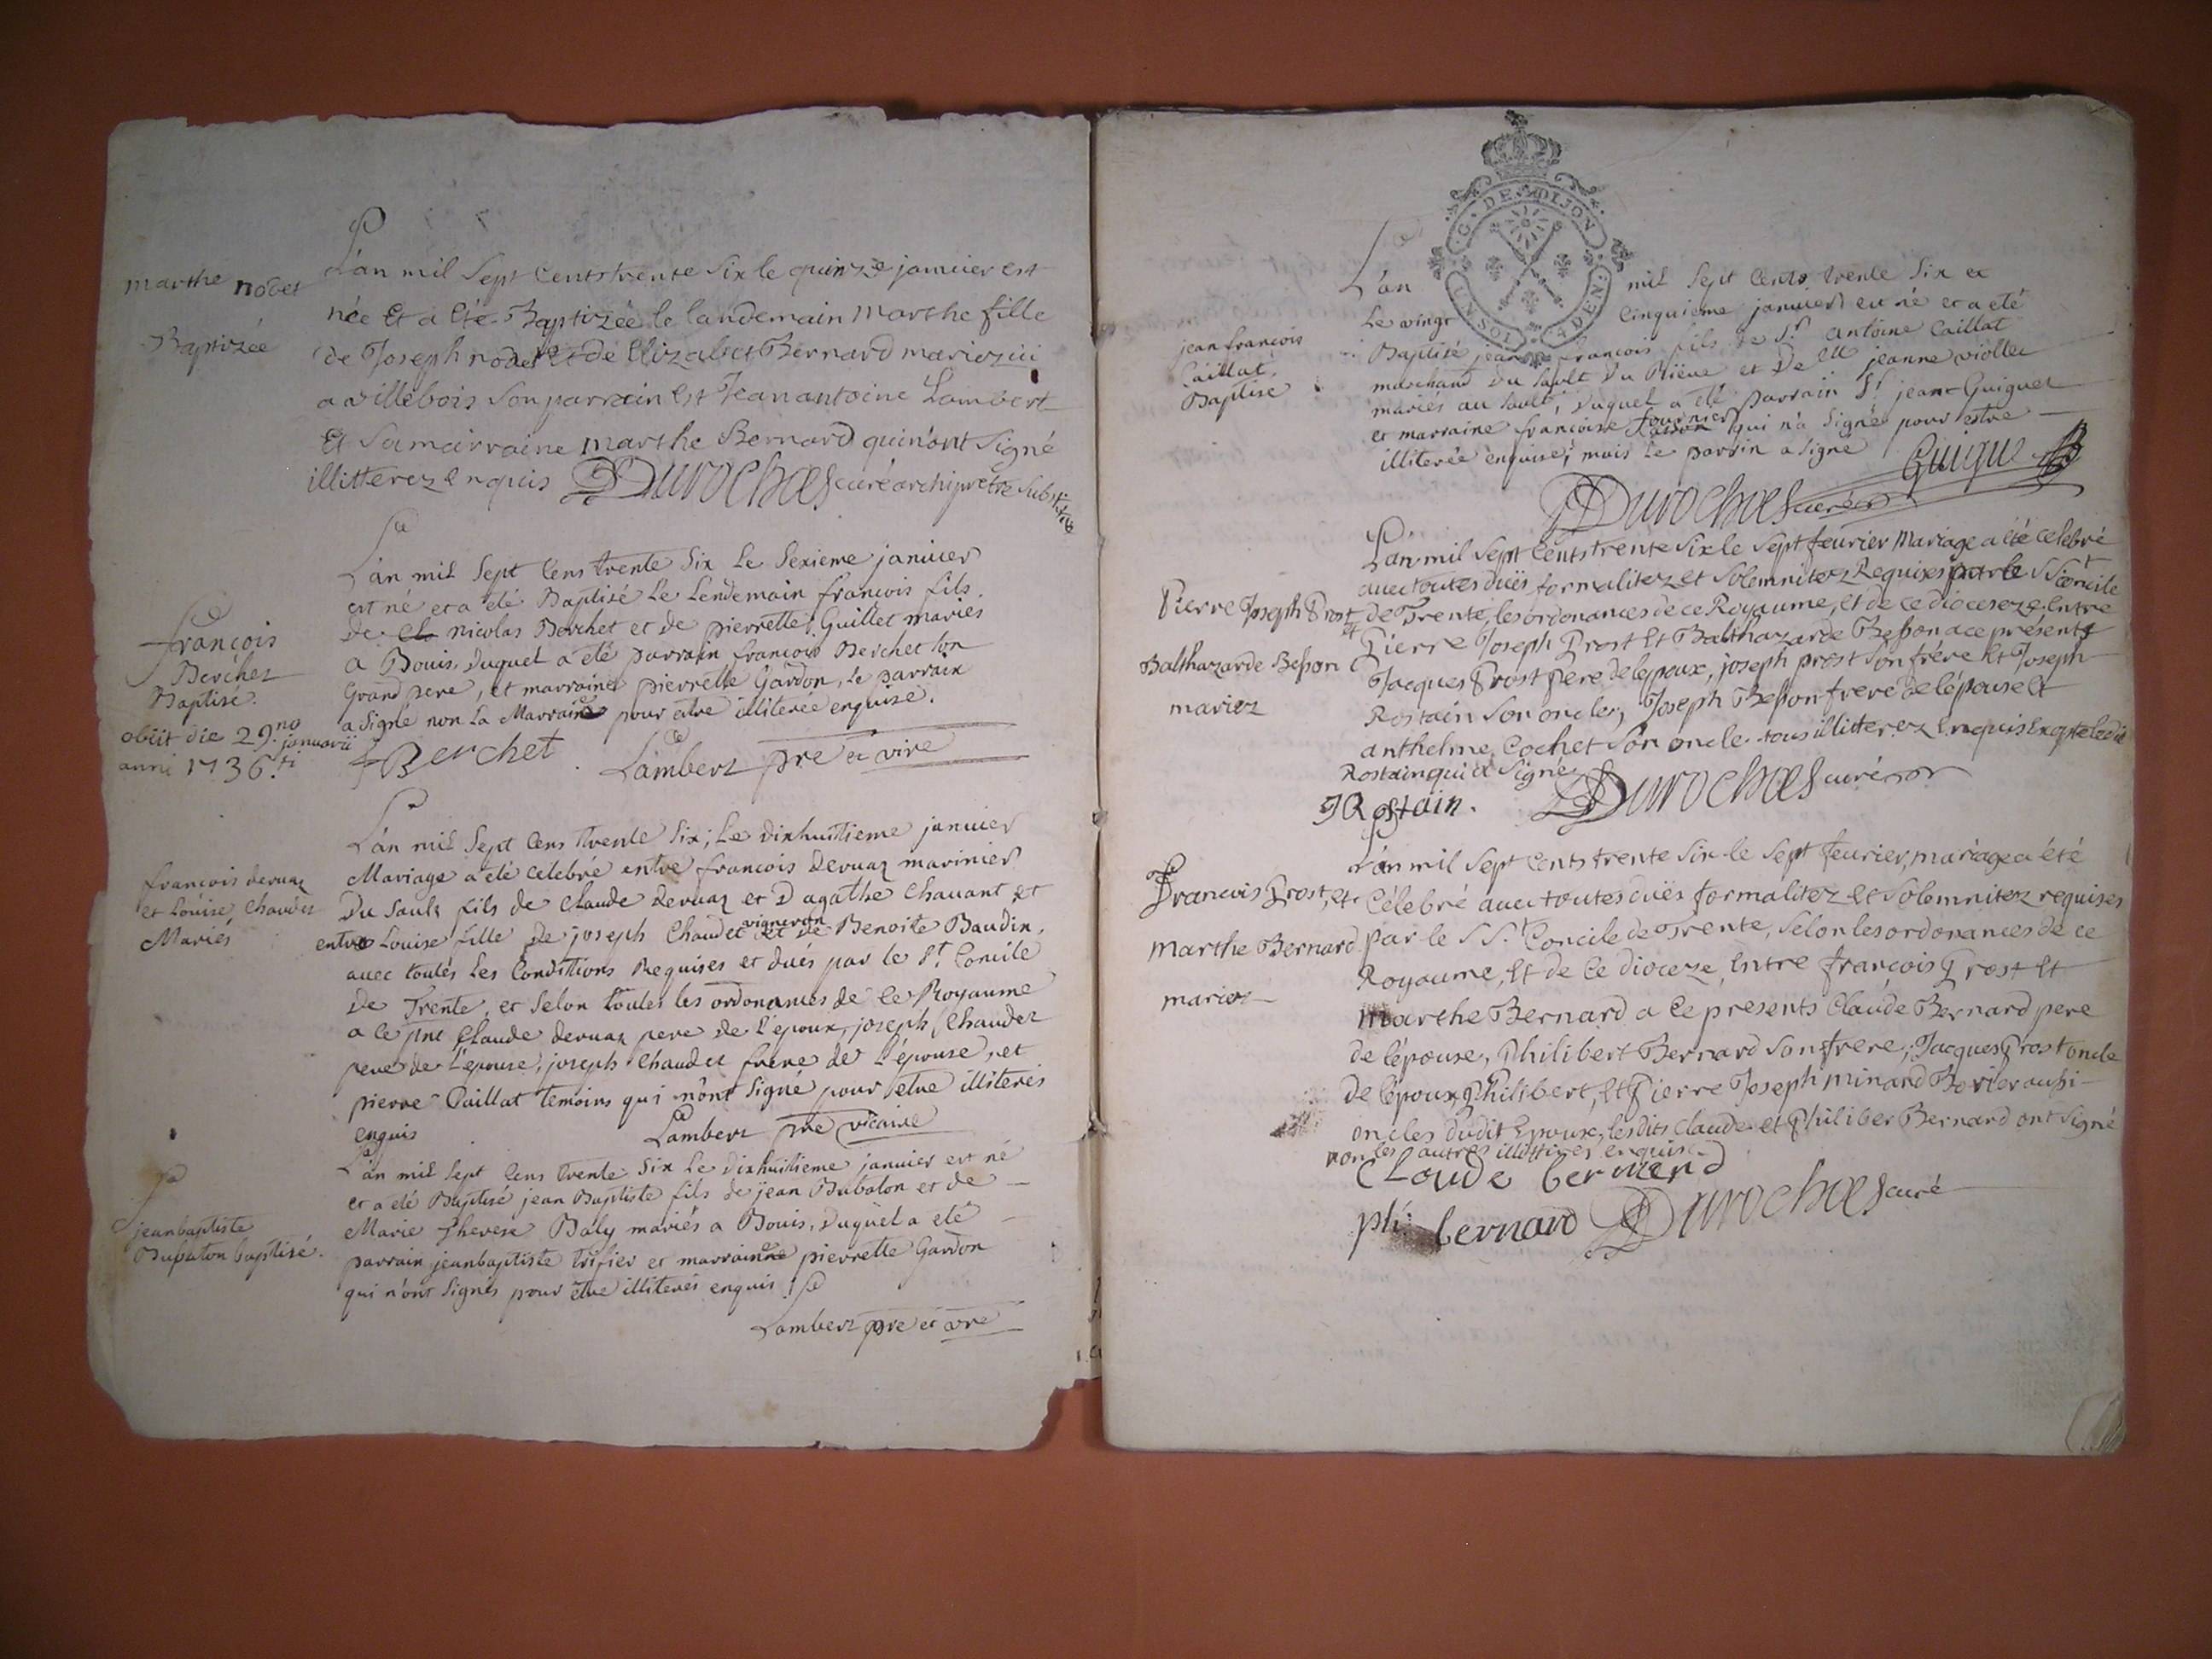 marthe nodet
Baptizée
L'an mil Sept Cents trente Six le quinze januier est
née Et a Eté Baptizée le landemain Marthe fille
de Joseph nodet Et de Elizabet Bernard mariez ici
a villebois Son parrain Est Jean antoine Lambert
Et Sa marraine marthe Bernard qui n'ont Signé
illitterez enquis Durochas curé archipretre Substitué
françois
Berchet
Baptisé.
obiit die 29.no januarii
anni 1736.ti
L'an mil Sept Cens trente Six Le Sexieme januier
est né et a eté Baptisé Le Lendemain francois fils
de nicolas Berchet et de pierrette Guillet mariés
a Bouis, duquel a eté parrain francois Berchet son
Grand pere, et marraine pierrette Gardon, Le parrain
a Signé non La Marraine pour etre illiterée enquise.
f Berchet. Lambert pre et vire
francois deruaz
et Loüise Chaudet
Mariés
L'an mil Sept Cens trente Six; Le dixhuitieme januier
Mariage a eté celebré entre francois deruaz marinier
Du Sault fils de Claude deruaz et D agathe Chauant et
entre Louise fille de joseph Chaudet vigneron et de Benoite Baudin,
auec toutes Les Conditions Requises et dués par le St. Concile
De Trente, et Selon toutes les ordonances de Ce Royaume
a ce pnt Claude deruaz pere de L'epoux, joseph Chaudet
pere de L'epouse, joseph Chaudet frere de L'épouse, et
pierre Caillat temoins qui n'ont Signé pour etre illiterés
enquis Lambert pre vicaire
jeanbaptiste
Bubaton baptisé.
L'an mil Sept Cens trente Six Le dixhuitieme januier est né
et a eté Baptisé jean Baptiste fils de jean Bubaton et de
Marie Therese Baly mariés a Bouis, duquel a eté
parrain jeanbaptiste trifier et marrainne pierrette Gardon
qui n'ont Signés pour etre illiterés enquis
Lambert pre et vre
G. DE DIJON
UN SOL 4 DEN.
jean francois
Caillat.
Baptisé
L'an mil Sept Cents trente Six et
Le vingt Cinquieme januier est né et a eté
Baptisé jean francois fils de Sr. antoine Caillat
marchand du Sault du Rhône et De elle jeanne viollet
mariés au Sault, duquel a eté parrain Sr. jean Guiguet
et marraine francoise fournier qui n'a Signée pour estre
illiterée enquise; mais Le parrin a signé Guigue
Durochas curé
Pierre Joseph Prost et
Balthazarde Besson
mariez
L'an mil Sept Cents trente Six le Sept feurier Mariage a été Celebré
auec toutes duës formalitez et Solemnitez Requises par le St Concile
de Trente, les ordonances de ce Royaume, et de ce dioceze Entre
Pierre Joseph Prost Et Balthazarde Besson a ce présents
Jacques Prost Pere de lepoux, joseph prost Son frére Et Joseph
Rostain Son oncle, Joseph Besson frere de lépouse Et
anthelme Cochet Son oncle tous illitterez Enquis Excepté ledit
Rostain qui a Signé
J Rostain. Durochas curé
Francois Prost, et
Marthe Bernard
mariez
L'an mil Sept Cents trente Six le Sept feurier, mariage a été
Célebré auec toutes duës formalitez et Solemnitez requises
par le St. Concile de Trente, Selon les ordonances de ce
Royaume, Et de Ce dioceze, Entre françois Prost Et
Marthe Bernard a Ce présents Claude Bernard pere
de lépouse, Philibert Bernard Son frere, Jacques Prost oncle
de lépoux, Philibert, Et Pierre Joseph Minand aussi
oncles dudit Epoux, lesdits Claude et Philiber Bernard ont Signé
non les autres illittirés enquis
Claude bernend
phi: bernard Durochas curé